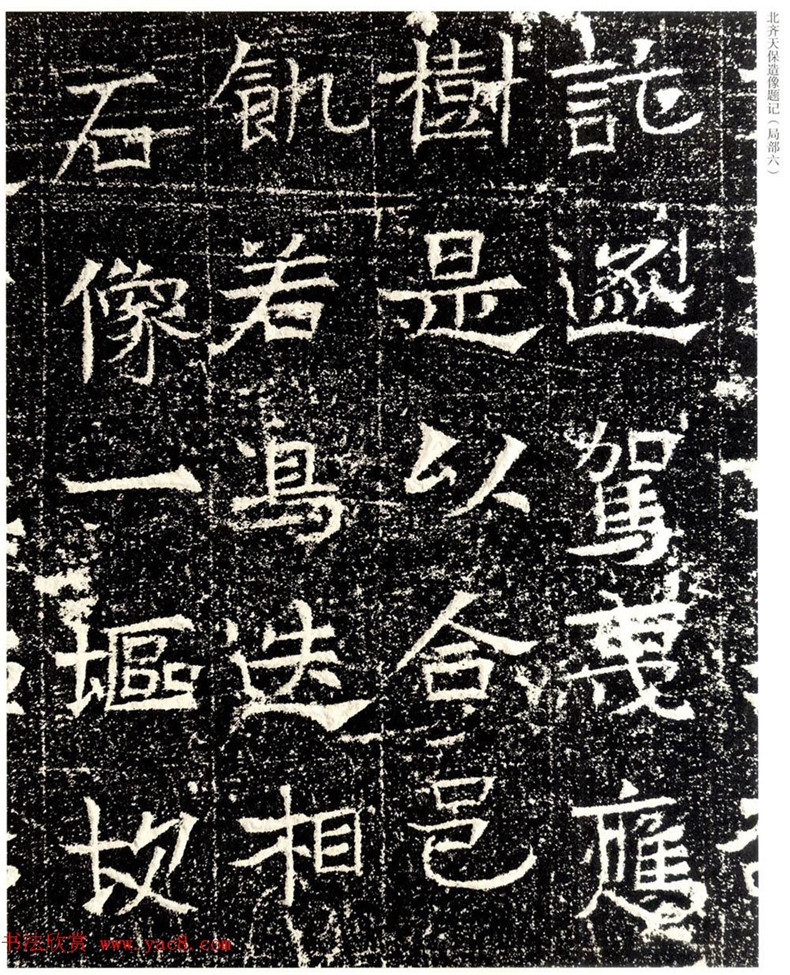 北齐天保造像题记（局部六）
託駕應
樹是以合邑
飢若迭相
石像一塸坆
书法欣赏 www.yac8.com